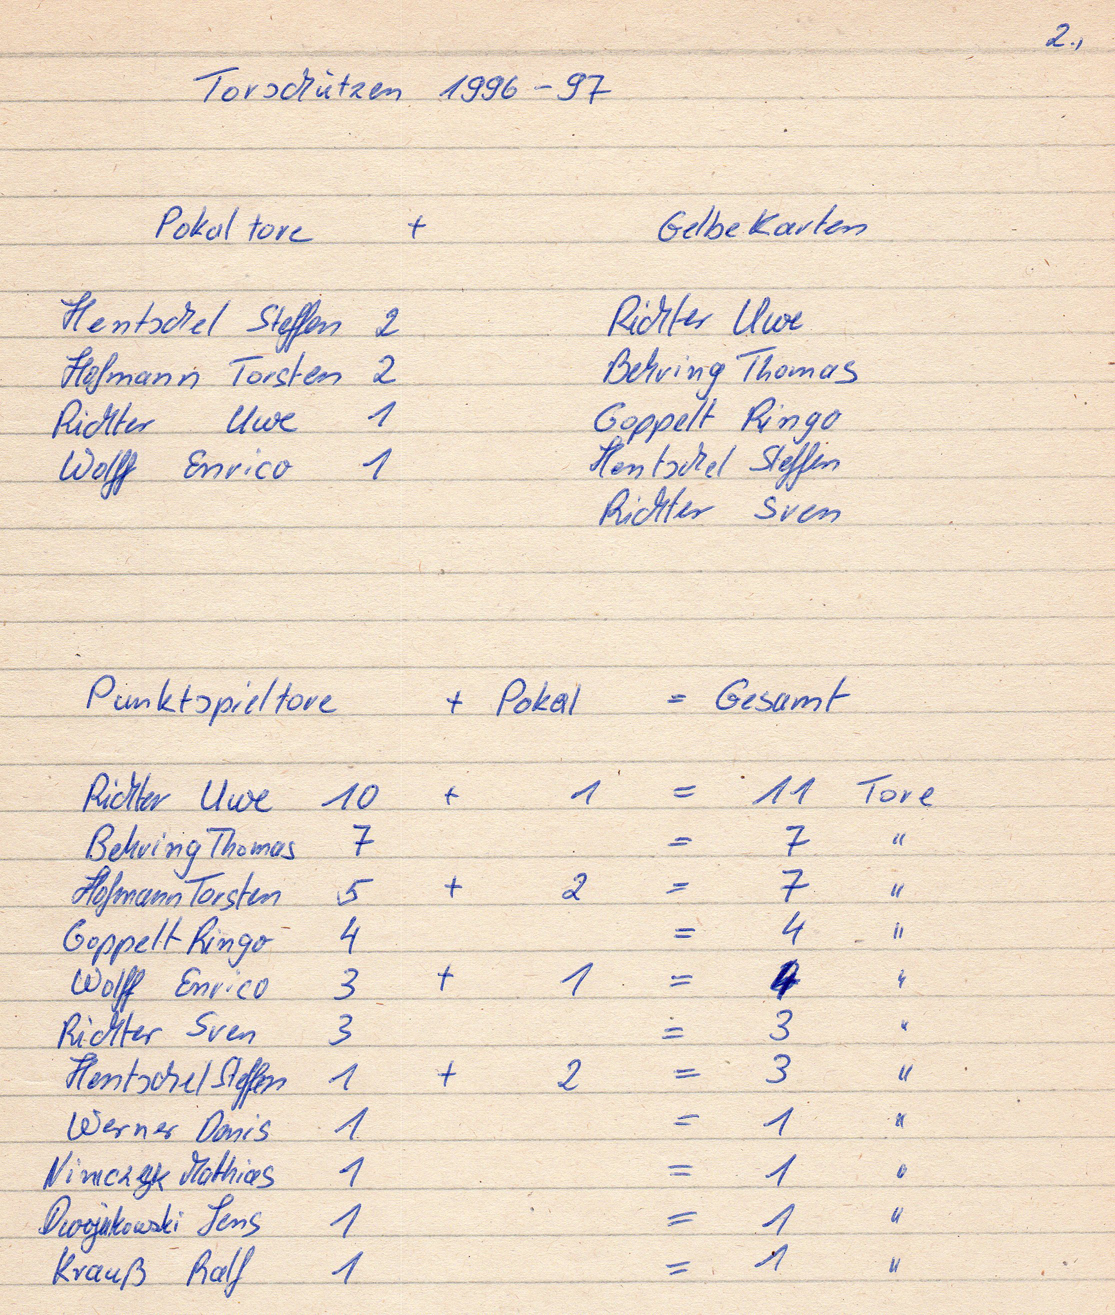 2.,
Torschützen 1996-97
Pokaltore + Gelbe Karten
Hentschel Steffen 2 Richter Uwe
Hofmann Torsten 2 Behring Thomas
Richter Uwe 1 Goppelt Ringo
Wolff Enrico 1 Hentschel Steffen
Richter Sven
Punktspieltore + Pokal = Gesamt
Richter Uwe 10 + 1 = 11 Tore
Behring Thomas 7 = 7 "
Hofmann Torsten 5 + 2 = 7 "
Goppelt Ringo 4 = 4 "
Wolff Enrico 3 + 1 = 4 "
Richter Sven 3 = 3 "
Hentschel Steffen 1 + 2 = 3 "
Werner Danis 1 = 1 "
Nimczyk Mathias 1 = 1 "
Jens 1 = 1 "
Krauß Ralf 1 = 1 "